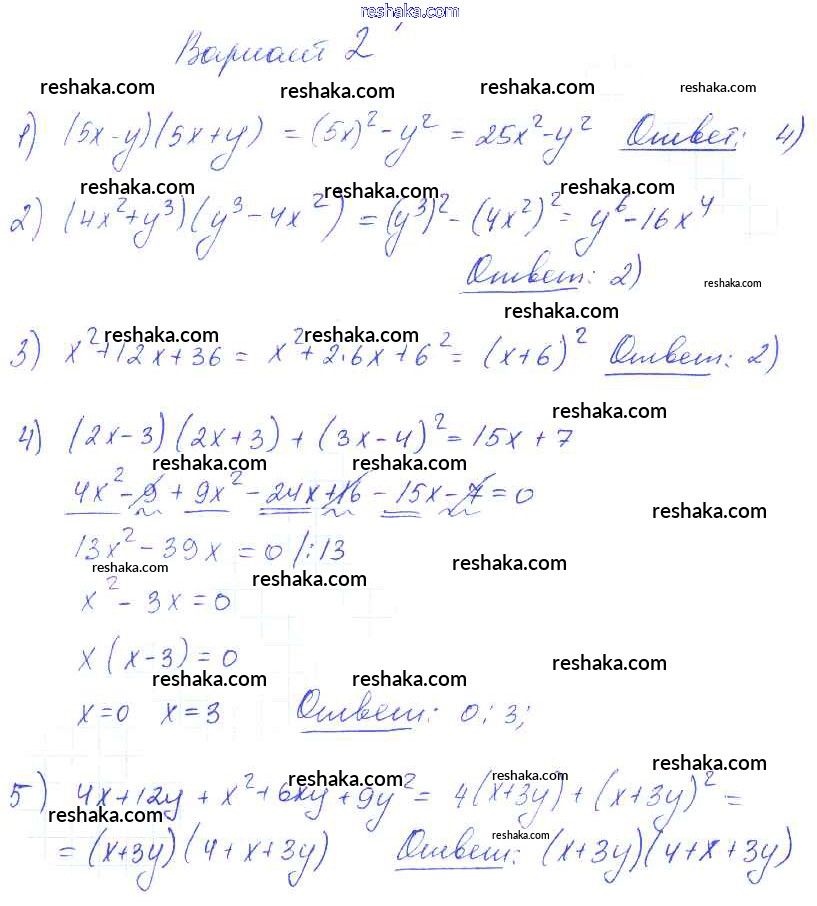 reshaka.com
Вариант 2
reshaka.com reshaka.com reshaka.com reshaka.com
1) (5x-y)(5x+y) = (5x)²-y² = 25x²-y² Ответ: 4)
reshaka.com reshaka.com reshaka.com
2) (4x²+y³)(y³-4x²) = (y³)²-(4x²)² = y⁶-16x⁴
Ответ: 2) reshaka.com
reshaka.com
reshaka.com reshaka.com
3) x²+12x+36 = x²+2·6x+6² = (x+6)² Ответ: 2)
reshaka.com
4) (2x-3)(2x+3)+(3x-4)² = 15x+7
reshaka.com reshaka.com
4x²-9+9x²-24x+16-15x-7=0
reshaka.com
13x²-39x=0 /:13
reshaka.com reshaka.com reshaka.com
x²-3x=0
x(x-3)=0 reshaka.com
reshaka.com reshaka.com
x=0 x=3 Ответ: 0; 3;
reshaka.com reshaka.com reshaka.com
5) 4x+12y+x²+6xy+9y² = 4(x+3y)+(x+3y)² =
reshaka.com reshaka.com
=(x+3y)(4+x+3y) Ответ: (x+3y)(4+x+3y)